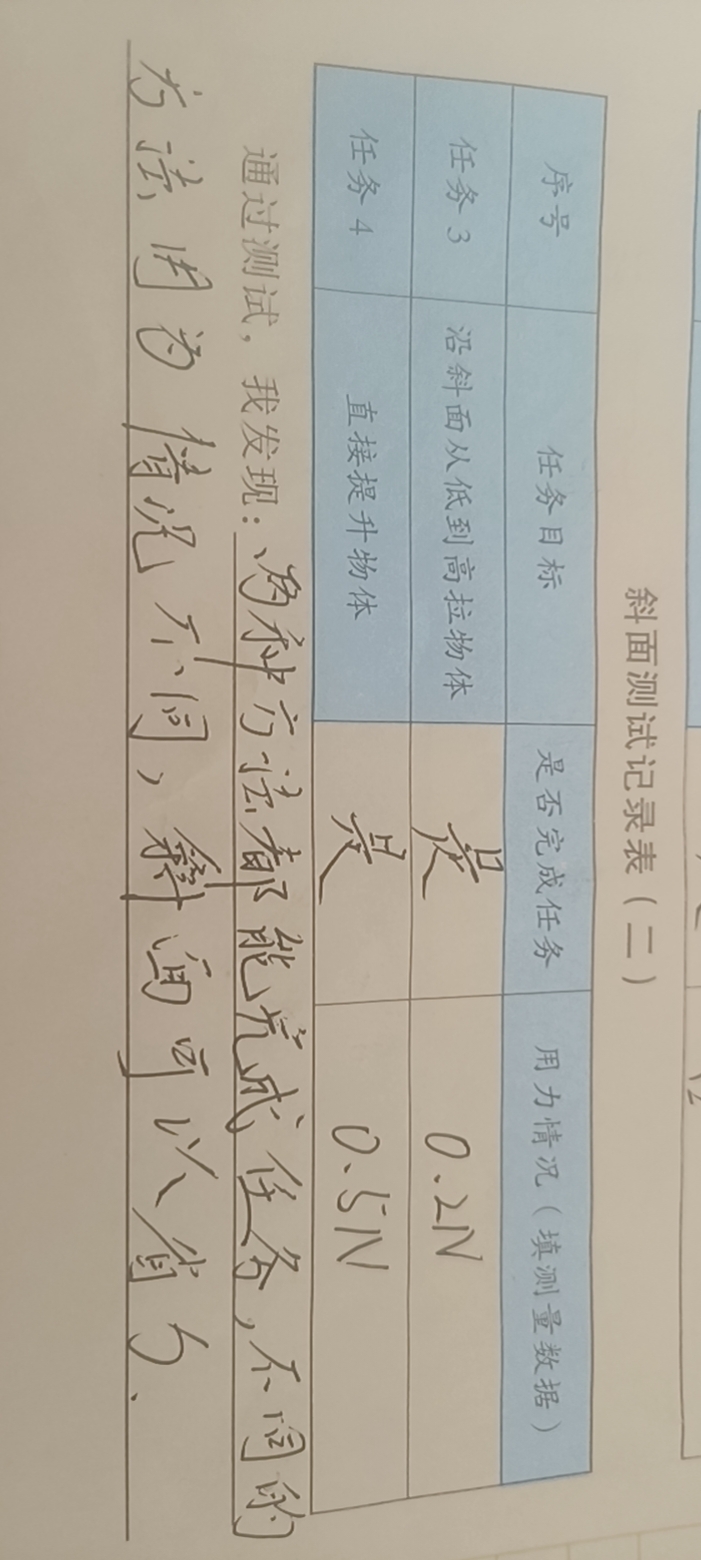 斜面测试记录表（二）
序号 任务目标 是否完成任务 用力情况（填测量数据）
任务3 沿斜面从低到高拉物体 是 0.2N
任务4 直接提升物体 是 0.5N
通过测试，我发现：两种方法都能完成任务，不同的
方法用力情况不同，斜面可以省力.